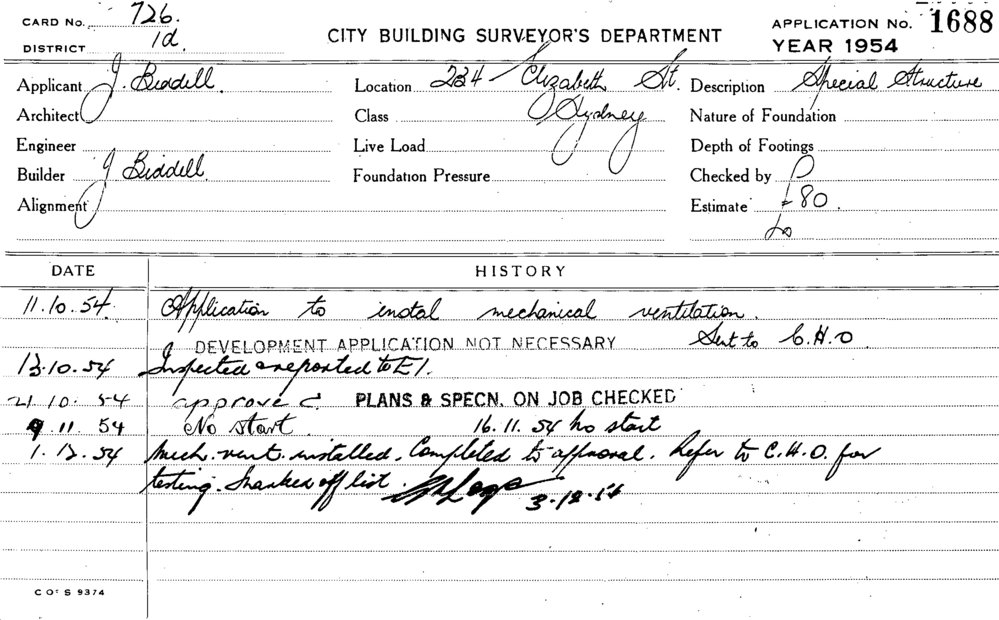 CARD No. 726.
DISTRICT 1d.
CITY BUILDING SURVEYOR'S DEPARTMENT
APPLICATION No. 1688
YEAR 1954
Applicant J. Biddell.
Location 234 Elizabeth St.
Description Special Structure
Architect
Class Sydney
Nature of Foundation
Engineer
Live Load
Depth of Footings
Builder J Biddell.
Foundation Pressure
Checked by
Alignment
Estimate £80.
DATE HISTORY
11.10.54. Application to instal mechanical ventilation.
DEVELOPMENT APPLICATION NOT NECESSARY Sent to C.H.O
13.10.54 Inspected & reported to E1.
21 10. 54 approved PLANS & SPECN. ON JOB CHECKED
9 11 54 No start. 16.11.54 no start
1.12.54 Mech. vent. installed. Completed to approval. Refer to C.H.O. for
testing. Marked off list. 3-12-54
C OF S 9374